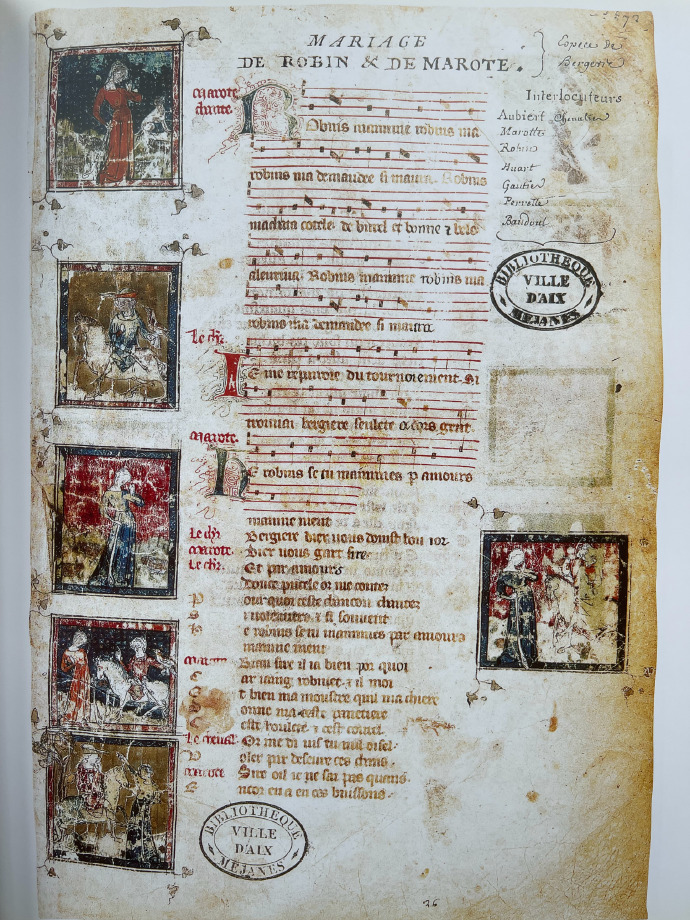 573
MARIAGE
DE ROBIN & DE MAROTE.
Espece de
Bergerie
Interlocuteurs
Aubiert Chevalier
Marotte
Robin
Huart
Gautier
Perrette
Baudoul
BIBLIOTHEQUE
VILLE
D'AIX
MEJANES
Marote
chante
Robins mamme robins ma
robins ma demandee si maura. Robins
machata cotele de burel et bonne & bele
aleuriua. Robins mamme robins ma
robins ma demandee si maura
Le chr
Ie me repairoie du tournoiement. Si
trouuai bergiere seulete a cors gent
Marote.
He robins se tu mammes p amours
maine ment
Le chr Bergiere diex uous doinst bon ior
Marote. Diex uous gart sire
Le chr. Et par amours
douce pucele or me contes
Pour quoi ceste chancon chantes
Si uolentiers & si souuent
He robins se tu mammes par amours
maine ment
Biau sire il ia bien por quoi
Car iaing robinet & il moi
Et bien ma moustre quil ma chiere
Donne ma ceste panetiere
Ceste houlete & cest coutel
Or me di uis tu nul oisel.
Voler par deseure ces chans.
Marote Sire oil ie ne sai pas quans.
Encor en a en ces buissons.
BIBLIOTHEQUE
VILLE
D'AIX
MEJANES
26